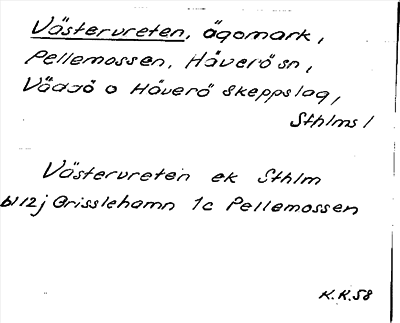 Västervreten, ägomark,
Pellemossen, Häverö sn,
Väddö o Häverö skeppslag,
Sthlms l
Västervreten ek Sthlm
bl 12j Grisslehamn 1c Pellemossen
K.R.58